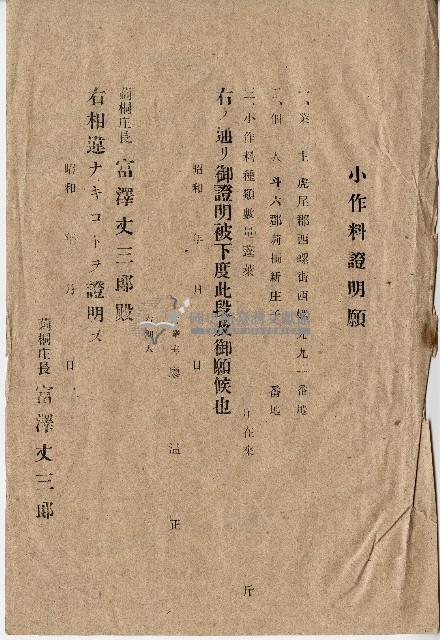 小作料證明願
一、業主 虎尾郡西螺街西螺九九一番地
二、佃人 斗六郡莿桐新庄子 番地
三、小作料種類數量蓬萊 斤在來 斤
右ノ通リ御證明被下度此段及御願候也
昭和 年 月 日
業主 廖温正
佃人
莿桐庄長 富澤丈三郎殿
右相違ナキコトヲ證明ス
昭和 年 月 日
莿桐庄長 富澤丈三郎